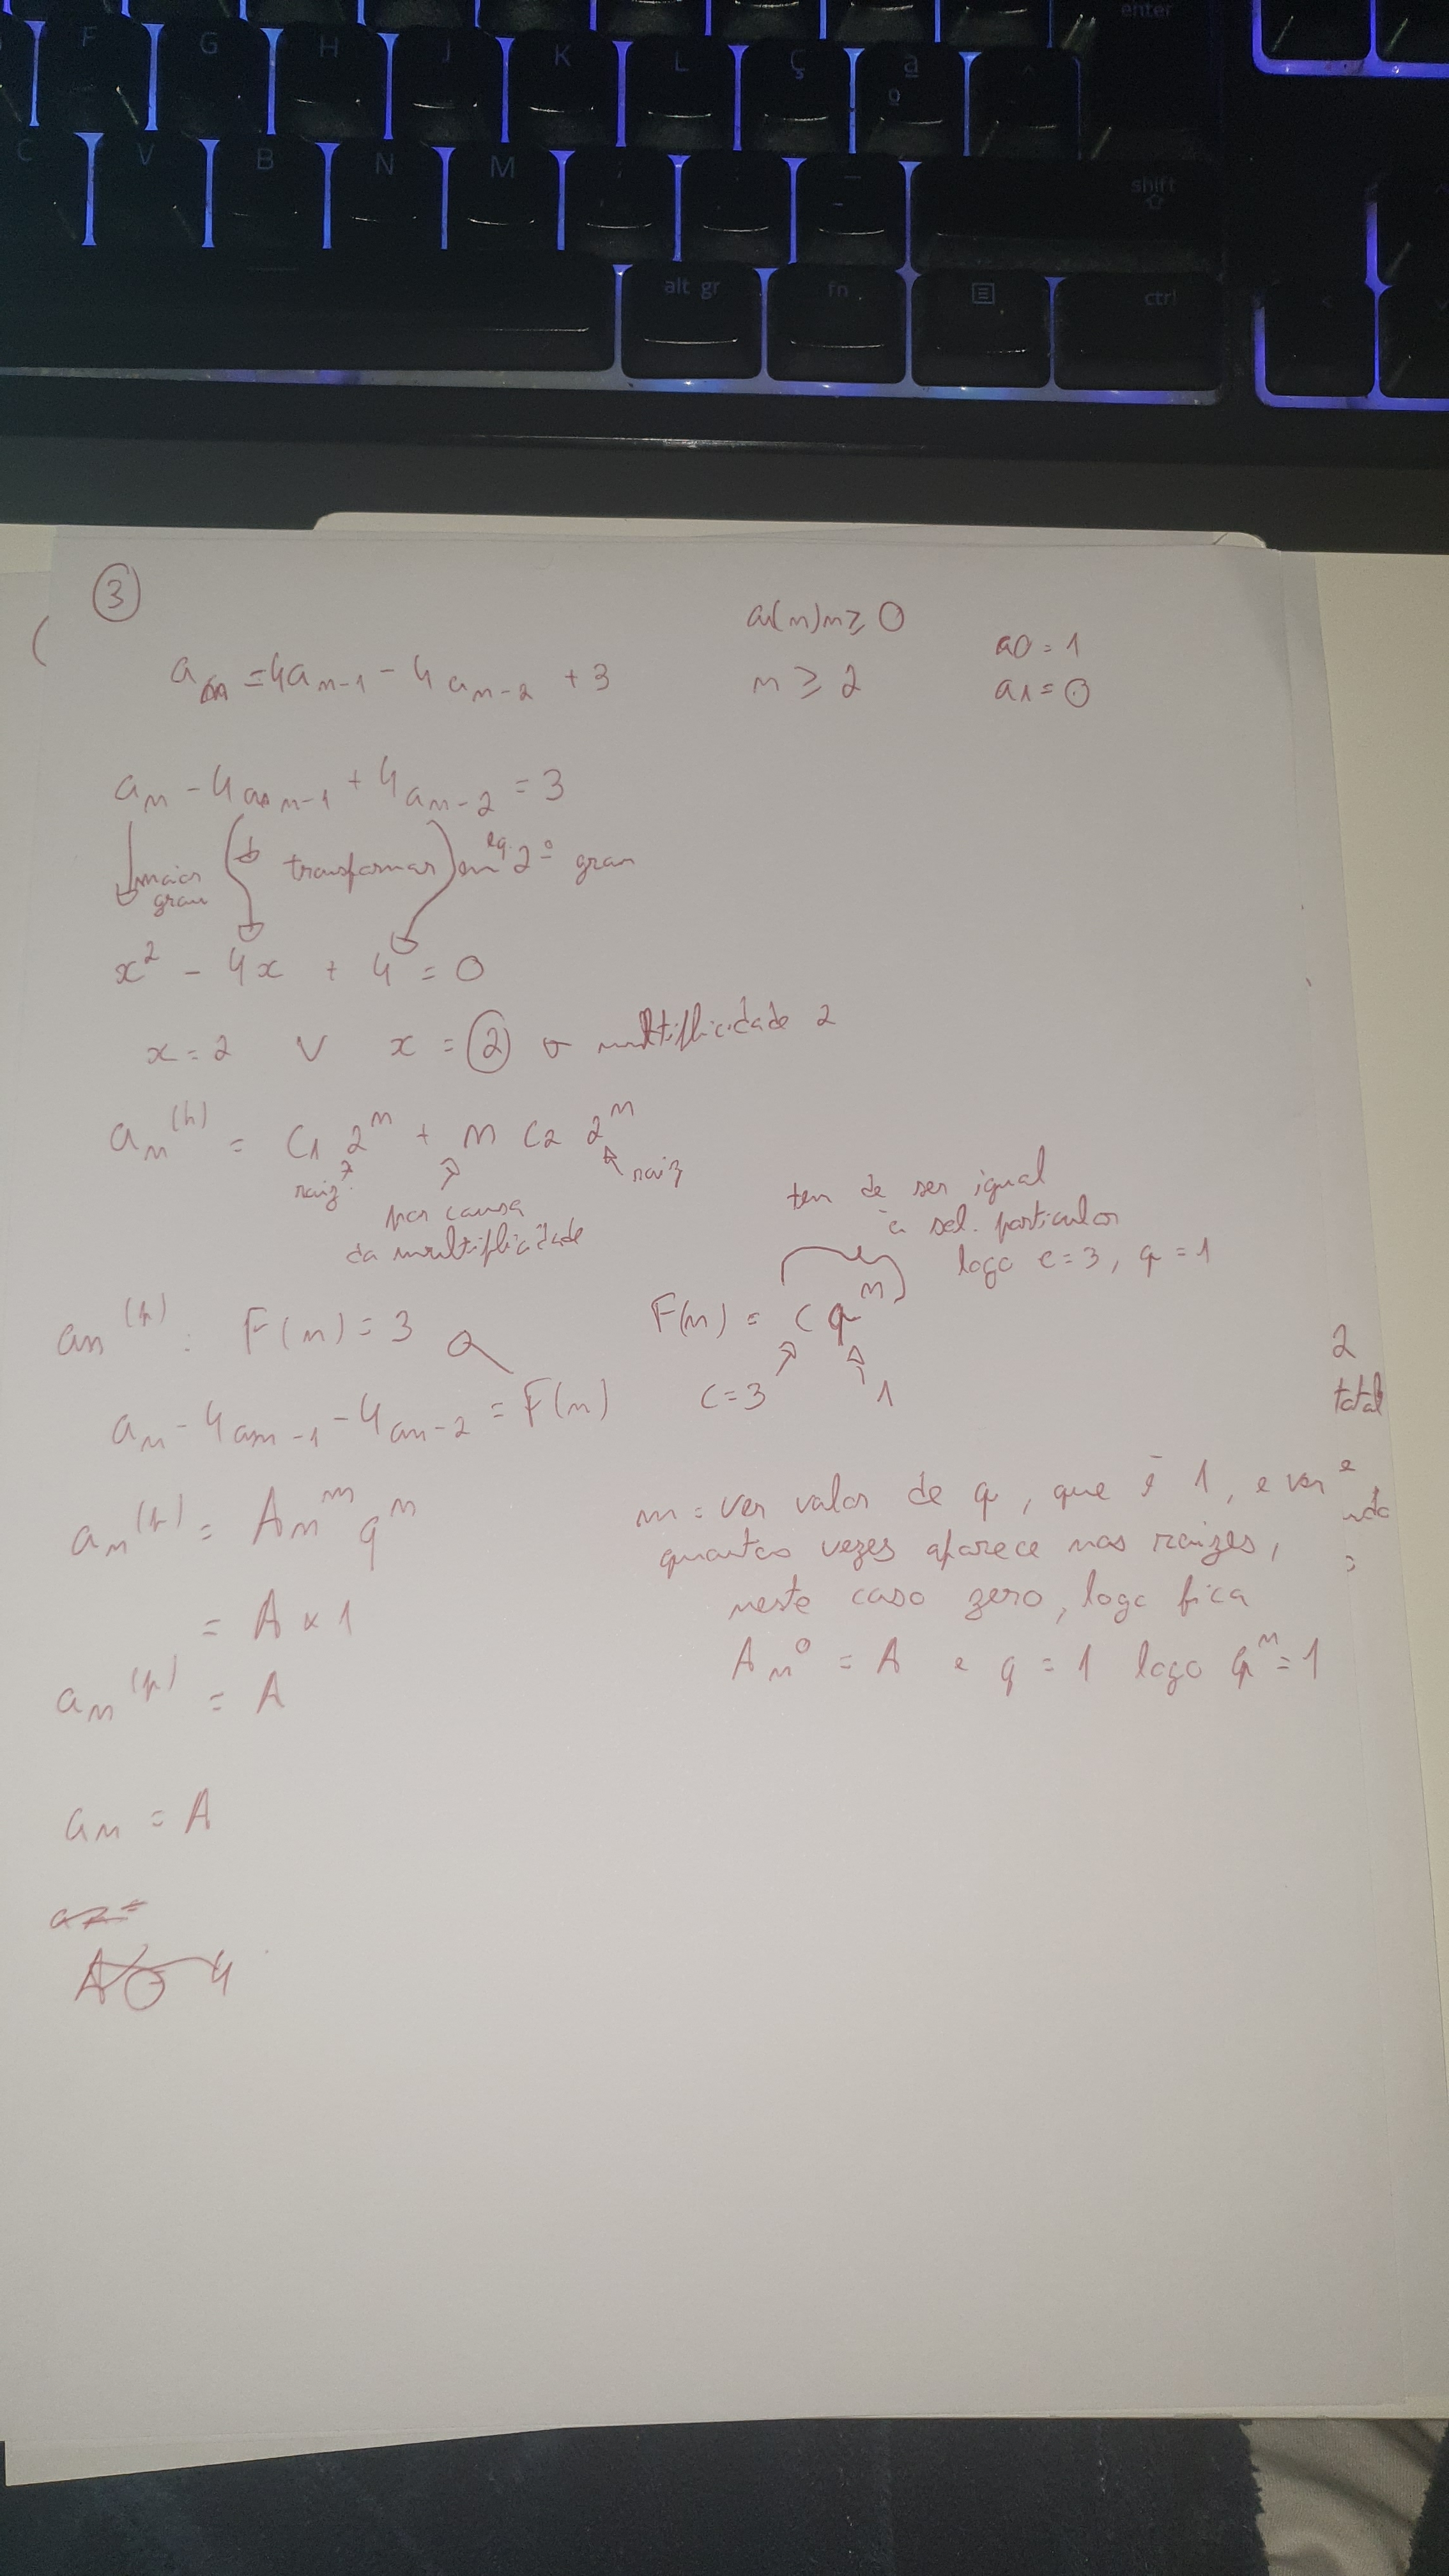 enter
F G H J K L Ç ª º ^
C V B N M ; : _ - shift
alt gr fn ctrl <
3
(
a(n) n ≥ 0
a0 = 1
an = 4an-1 - 4an-2 + 3
n ≥ 2
a1 = 0
an - 4an-1 + 4an-2 = 3
maior grau
transformar em eq. 2º grau
x² - 4x + 4 = 0
x = 2 V x = 2 → multiplicidade 2
an^(h) = C1 2^n + n C2 2^n
raiz
raiz
por causa
da multiplicidade
tem de ser igual
à sol. particular
logo c = 3, q = 1
an^(p) : F(n) = 3
F(n) = c q^n
c = 3
1
an - 4an-1 - 4an-2 = F(n)
2
total
an^(p) = A n^m q^n
m = ver valor de q, que é 1, e ver
quantas vezes aparece nas raizes,
= A x 1
neste caso zero, logo fica
an^(p) = A
A n^0 = A e q = 1 logo q^n = 1
an = A